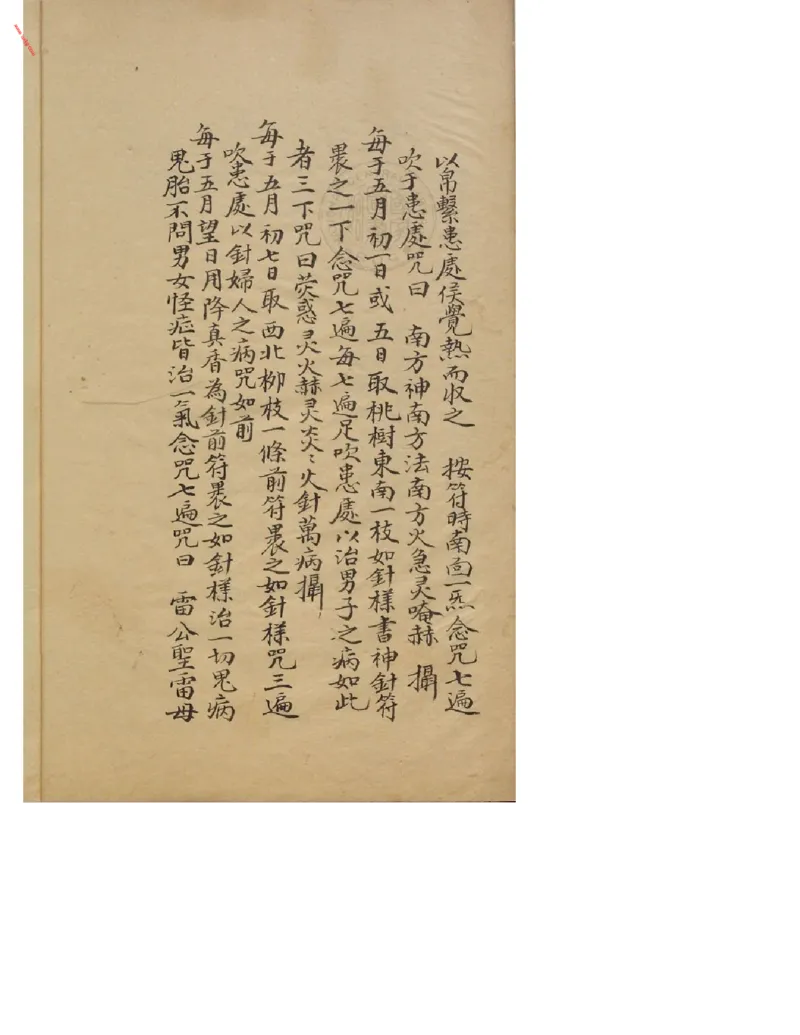 以帛繫患處侯覺熱而収之 按符時南向一炁念咒七遍
吹于患處咒曰 南方神南方法南方火急灵唵赫 攝
每于五月初一日或五日取桃樹東南一枝如針樣書神針符
裹之一下念咒七遍每七遍足吹患處以治男子之病如此
者三下咒曰荧惑灵火赫灵炎〻火針萬病攝
每于五月初七日取西北柳枝一條前符裹之如針樣咒三遍
吹患處以針婦人之病咒如前
每于五月望日用降真香為針前符裹之如針樣治一切鬼病
鬼胎不問男女怪症皆治一氣念咒七遍咒曰 雷公聖雷母